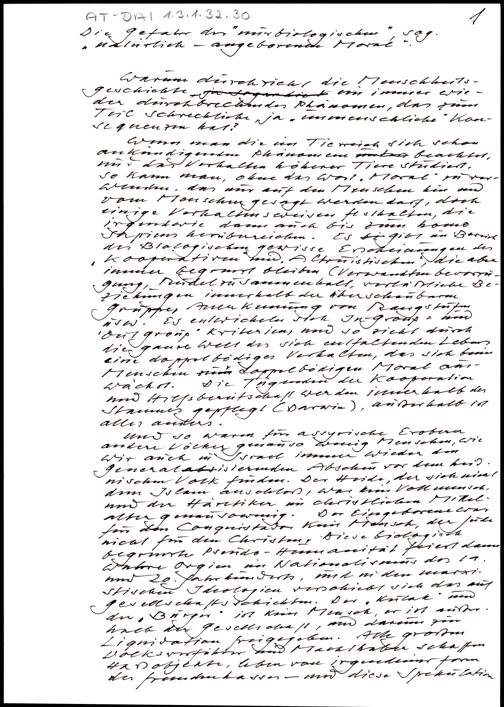 AT-DAI 1.3.1.32.30
1
Die Gefahr der "nurbiologischen", sog.
"natürlich-angeborenen Moral".
Warum durchzieht die Menschheits-
geschichte ein immer wie-
der durchbrechendes Phänomen, das zum
Teil schreckliche, ja "unmenschliche" Kon-
sequenzen hat?
Wenn man die im Tierreich sich schon
ankündigenden Phänomene beachtet,
und das Verhalten höherer Tiere studiert,
so kann man, ohne das Wort "Moral" zu ver-
wenden, das nur auf den Menschen hin und
vom Menschen gesagt werden darf, doch
einige Verhaltensweisen festhalten, die
irgendwie dann auch bis zum homo
sapiens heraufreichen. Es gibt im Bereich
des Biologischen gewisse Erscheinungen des
"Kooperativen" und "Altruistischen", die aber
immer begrenzt bleiben (Verwandtenbevorzu-
gung, Rudelzusammenhalt, verlässliche Be-
ziehungen innerhalb der überschaubaren
Gruppe, Anerkennung von Rangstufen
usw.). Es entwickeln sich "In-group" und
"Out-group" Kriterien, und so zieht durch
die ganze Welt des sich entfaltenden Lebens
eine doppelbödiges Verhalten, das sich beim
Menschen zur doppelbödigen Moral aus-
wächst. Die Tugenden der Kooperation
und Hilfsbereitschaft werden innerhalb des
Stammes gepflegt (Darwin), außerhalb ist
alles anders.
Und so waren für assyrische Eroberer
andere Völker genauso wenig Menschen, wie
wir auch in Israel immer wieder den
generalisierenden Abscheu vor dem heid-
nischen Volk finden. Der Heide, der sich nicht
dem Islam anschloß, war kein Vollmensch
und der Häretiker im christlichen Mittel-
alter genausowenig. Der Eingeborene war
für den Conquistador kein Mensch, der Jude
nicht für den Christen. Diese biologisch
begrenzte Pseudo-Humanität feiert dann
wahre Orgien im Nationalismus des 19.
und 20. Jahrhunderts, und in den marxi-
stischen Ideologien verschiebt sich das auf
Gesellschaftsschichten. Der "Kulak" und
der "Bürger" ist kein Mensch, er ist außer-
halb der Gesellschaft, und darum zur
Liquidation freigegeben. Alle großen
Volksverführer und Machthaber schaffen
Hassobjekte, leben von irgendeiner Form
des Fremdenhasses – und diese Spekulation